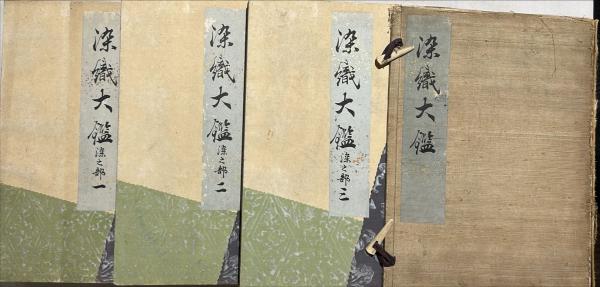 染織大鑑 染之部 一
染織大鑑 染之部 二
染織大鑑 染之部 三
染織大鑑